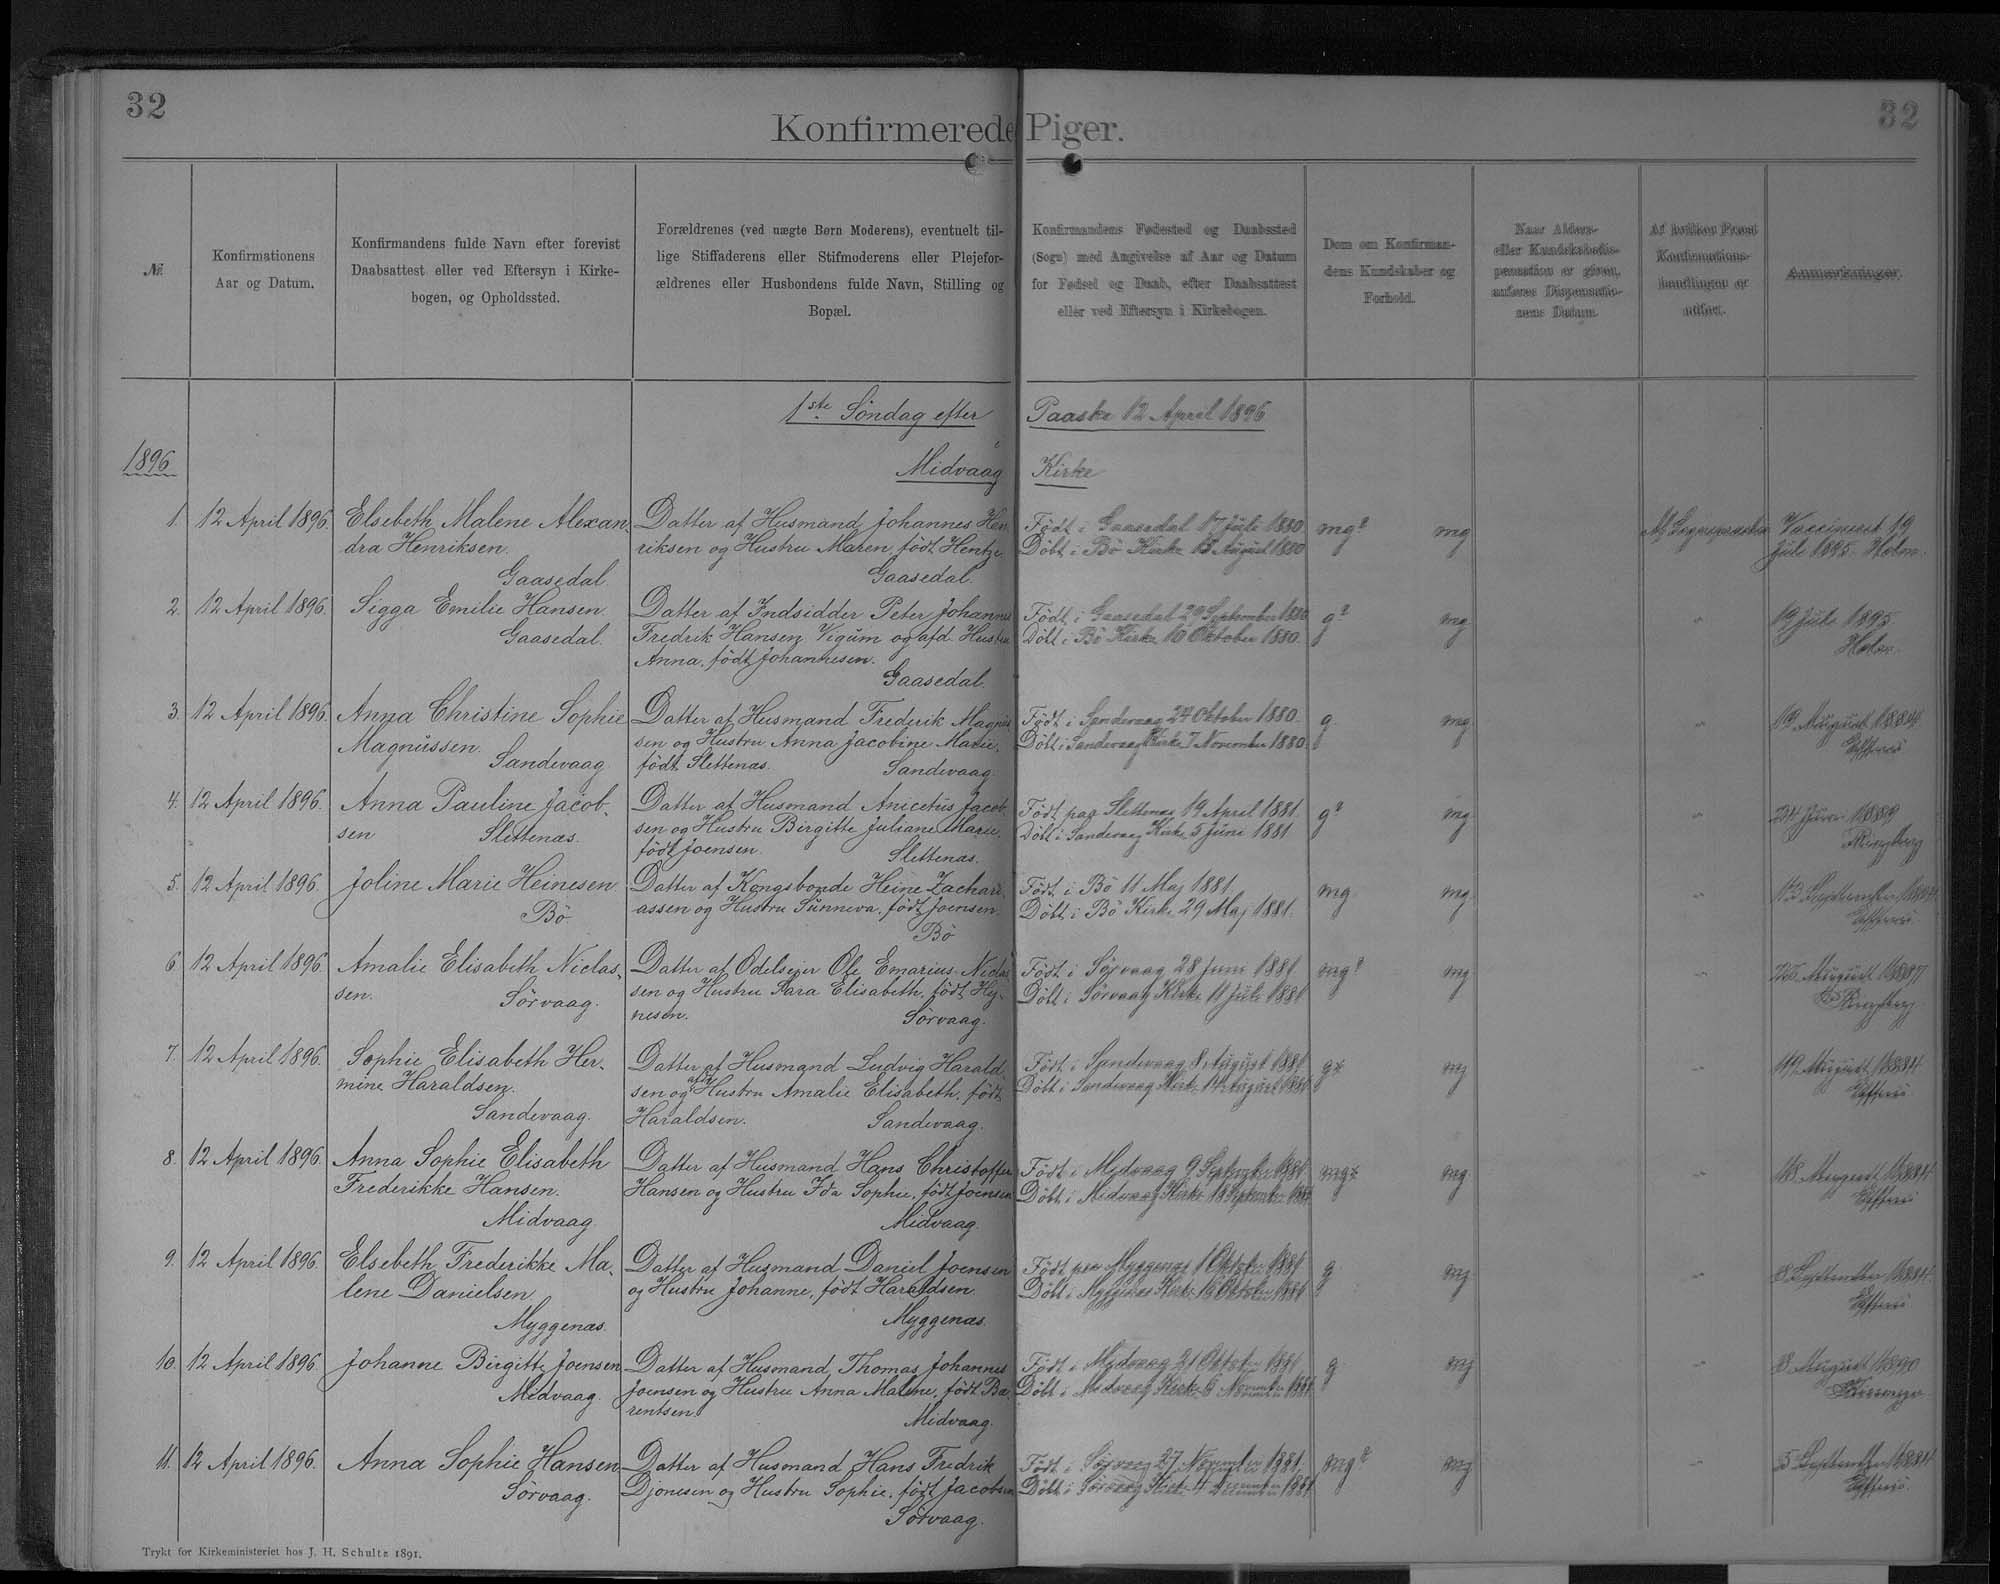 32
32
Konfirmerede Piger.
№
Konfirmationens
Aar og Datum.
Konfirmandens fulde Navn efter forevist
Daabsattest eller ved Eftersyn i Kirke-
bogen, og Opholdssted.
Forældrenes (ved uægte Børn Moderens), eventuelt til-
lige Stiffaderens eller Stifmoderens eller Plejefor-
ældrenes eller Husbondens fulde Navn, Stilling og
Bopæl.
Konfirmandens Fødested og Daabssted
(Sogn) med Angivelse af Aar og Datum
for Fødsel og Daab, efter Daabsattest
eller ved Eftersyn i Kirkebogen.
Dom om Konfirman-
dens Kundskaber og
Forhold.
Naar Alders-
eller Kundskabsdis-
pensation er given,
anføres Dispensatio-
nens Datum.
Af hvilken Præst
Konfirmations-
handlingen er
udført.
Anmærkninger.
1ste Söndag efter Paaske 12 April 1896
1896
Midvaag Kirke
1. 12 April 1896. Elsebeth Malene Alexan-
dra Henriksen.
Gaasedal.
Datter af Husmand Johannes Hen-
riksen og Hustru Maren, født Hentze.
Gaasedal.
Födt i Gaasedal 17 Juli 1880
Döbt i Bö Kirke 15 August 1880
mg? mg
Vaccineret 19
Juli 1895. Holm.
2. 12 April 1896. Sigga Emilie Hansen.
Gaasedal.
Datter af Indsidder Peter Johannes
Fredrik Hansen, Vigum og afd. Hustru
Anna, født Johannesen.
Gaasedal.
Födt i Gaasedal 29 September 1880
Döbt i Bö Kirke 10 Oktober 1880.
g? mg "
19 Juli 1895
Holm.
3. 12 April 1896. Anna Christine Sophie
Magnussen.
Sandevaag.
Datter af Husmand Frederik Magnus-
sen og Hustru Anna Jacobine Marie,
født Slettenæs.
Sandevaag.
Födt i Sandevaag 24 Oktober 1880.
Döbt i Sandevaag Kirke 7 November 1880.
g mg "
August 1884
4. 12 April 1896. Anna Pauline Jacob-
sen Slettenæs.
Datter af Husmand Anicetus Jacob-
sen og Hustru Birgitte Juliane Marie,
født Joensen.
Slettenæs.
Födt paa Slettenæs 19 April 1881.
Döbt i Sandevaag Kirke 5 Juni 1881
g? mg "
24 Juni 1889
5. 12 April 1896. Joline Marie Heinesen
Bö.
Datter af Kongsbonde Heine Zachari-
assen og Hustru Sunneva, født Joensen.
Bö
Födt i Bö 11 Maj 1881.
Döbt i Bö Kirke 29 Maj 1881.
mg mg "
September
6. 12 April 1896. Amalie Elisabeth Niclas-
sen. Sörvaag.
Datter af Odelsejer Ole Emarius Niclas-
sen og Hustru Sara Elisabeth, født Hej-
nesen.
Sörvaag.
Födt i Sörvaag 28 Juni 1881.
Döbt i Sörvaag Kirke 11 Juli 1881
mg? mg "
August 1887
7. 12 April 1896. Sophie Elisabeth Her-
mine Haraldsen.
Sandevaag.
Datter af Husmand Ludvig Harald-
sen og afd Hustru Amalie Elisabeth, født
Haraldsen.
Sandevaag.
Födt i Sandevaag August 1881
Döbt i Sandevaag Kirke August 1881
mg "
August 1884
8. 12 April 1896. Anna Sophie Elisabeth
Frederikke Hansen.
Midvaag.
Datter af Husmand Hans Christoffer
Hansen og Hustru Ida Sophie, født Joensen
Midvaag.
Födt i Midvaag 9 September 1881
Döbt i Midvaag Kirke 18 September 1881
mg "
18 August 1884
9. 12 April 1896. Elsebeth Frederikke Ma-
lene Danielsen
Myggenæs.
Datter af Husmand Daniel Joensen
og Hustru Johanne, født Haraldsen.
Myggenæs.
Födt paa Myggenæs 1 Oktober 1881
Döbt i Myggenæs Kirke 16 Oktober 1881
g mg "
8 September 1884
10. 12 April 1896. Johanne Birgitte Joensen
Midvaag.
Datter af Husmand Thomas Johannes
Joensen og Hustru Anna Malene, født Ba-
rentsen.
Midvaag.
Födt i Midvaag 21 Oktober 1881
Döbt i Midvaag Kirke 6 November 1881
g mg "
8 August 1890
11. 12 April 1896. Anna Sophie Hansen
Sörvaag.
Datter af Husmand Hans Fredrik
Djonesen og Hustru Sophie, født Jacobsen
Sörvaag.
Födt i Sörvaag 27 November 1881.
Döbt i Sörvaag Kirke 4 December 1881
mg? mg "
5 September 1884
Trykt for Kirkeministeriet hos J. H. Schultz 1891.